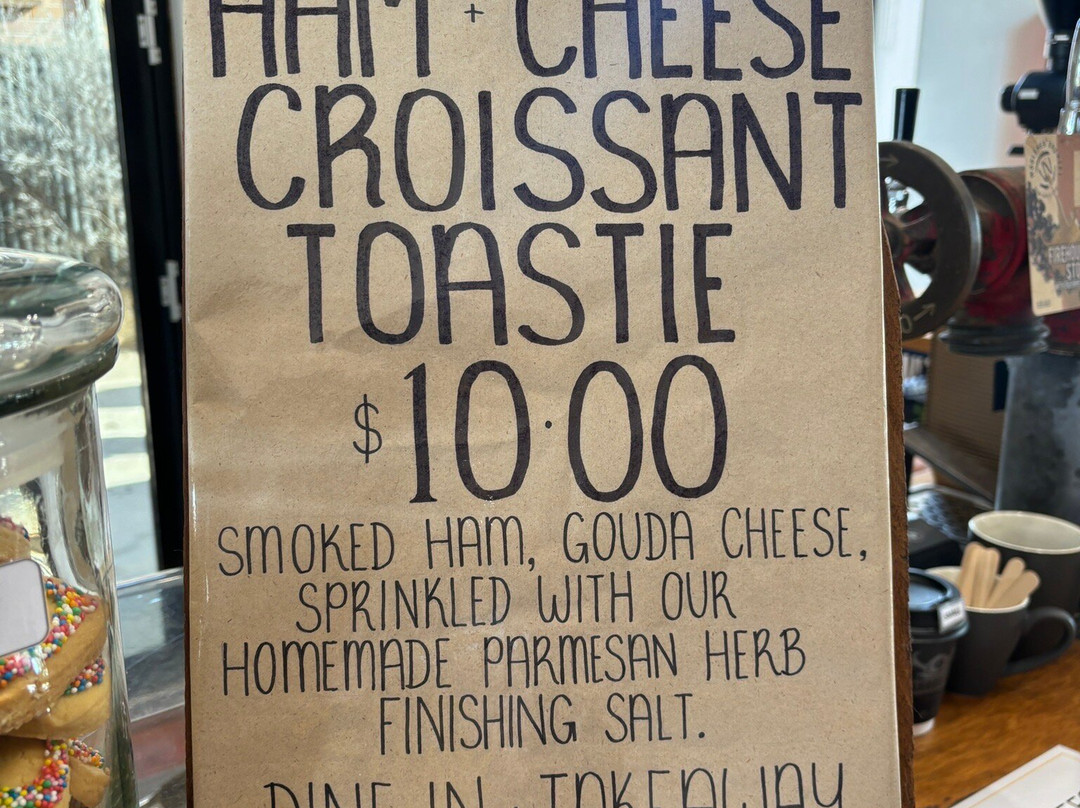 HAM + CHEESE
CROISSANT
TOASTIE
$10.00
SMOKED HAM, GOUDA CHEESE,
SPRINKLED WITH OUR
HOMEMADE PARMESAN HERB
FINISHING SALT.
DINE IN TAKEAWAY